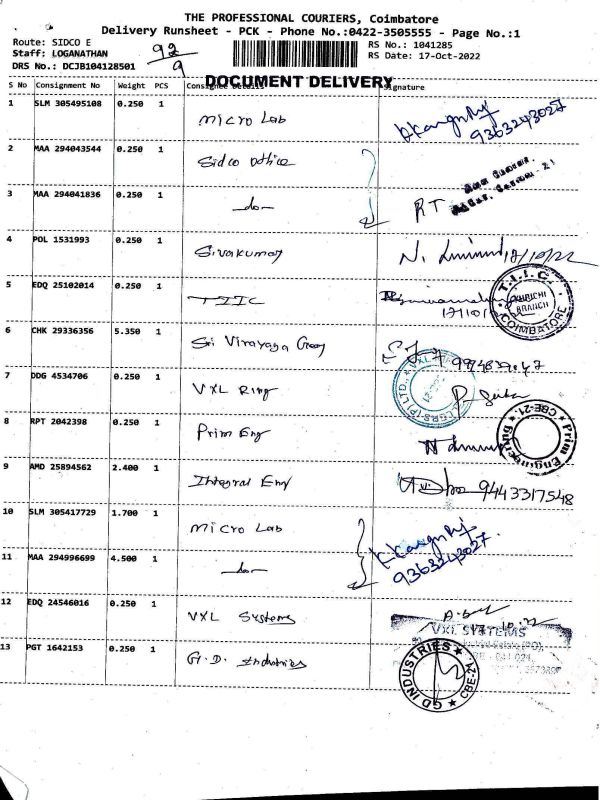 THE PROFESSIONAL COURIERS, Coimbatore
Delivery Runsheet - PCK - Phone No.:0422-3505555 - Page No.:1
Route: SIDCO E
Staff: LOGANATHAN
DRS No.: DCJB104128501
92
9
RS No.: 1041285
RS Date: 17-Oct-2022
DOCUMENT DELIVERY
S No Consignment No Weight PCS Consignee Details Signature
1 SLM 305495108 0.250 1 Micro Lab 9363243027
2 MAA 294043544 0.250 1 Sidco Office
3 MAA 294041836 0.250 1 -do- RT
4 POL 1531993 0.250 1 Sivakumar N.
5 EDQ 25102014 0.250 1 TIIC
T.I.I.C. KURICHI BRANCH COIMBATORE
6 CHK 29336356 5.350 1 Sri Vinayaga
7 DDG 4534706 0.250 1 VXL Ring
8 RPT 2042398 0.250 1 Prim Eng
Prim Engineering CBE-21.
9 AMD 25894562 2.400 1 Integral Eng 9443317548
10 SLM 305417729 1.700 1 Micro Lab
11 MAA 294996699 4.500 1 -do- 9363243027.
12 EDQ 24546016 0.250 1 VXL Systems
VXL SYSTEMS
13 PGT 1642153 0.250 1 G.D. Industries
GD INDUSTRIES CBE-21